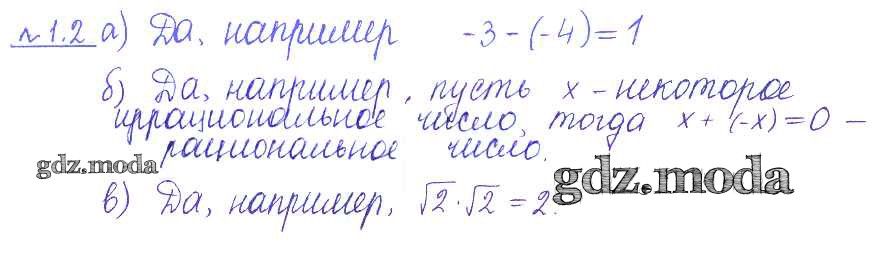 № 1.2 а) Да, например -3-(-4)=1
б) Да, например, пусть x - некоторое
иррациональное число, тогда x+(-x)=0 -
рациональное число.
gdz.moda
gdz.moda
в) Да, например, √2·√2=2.